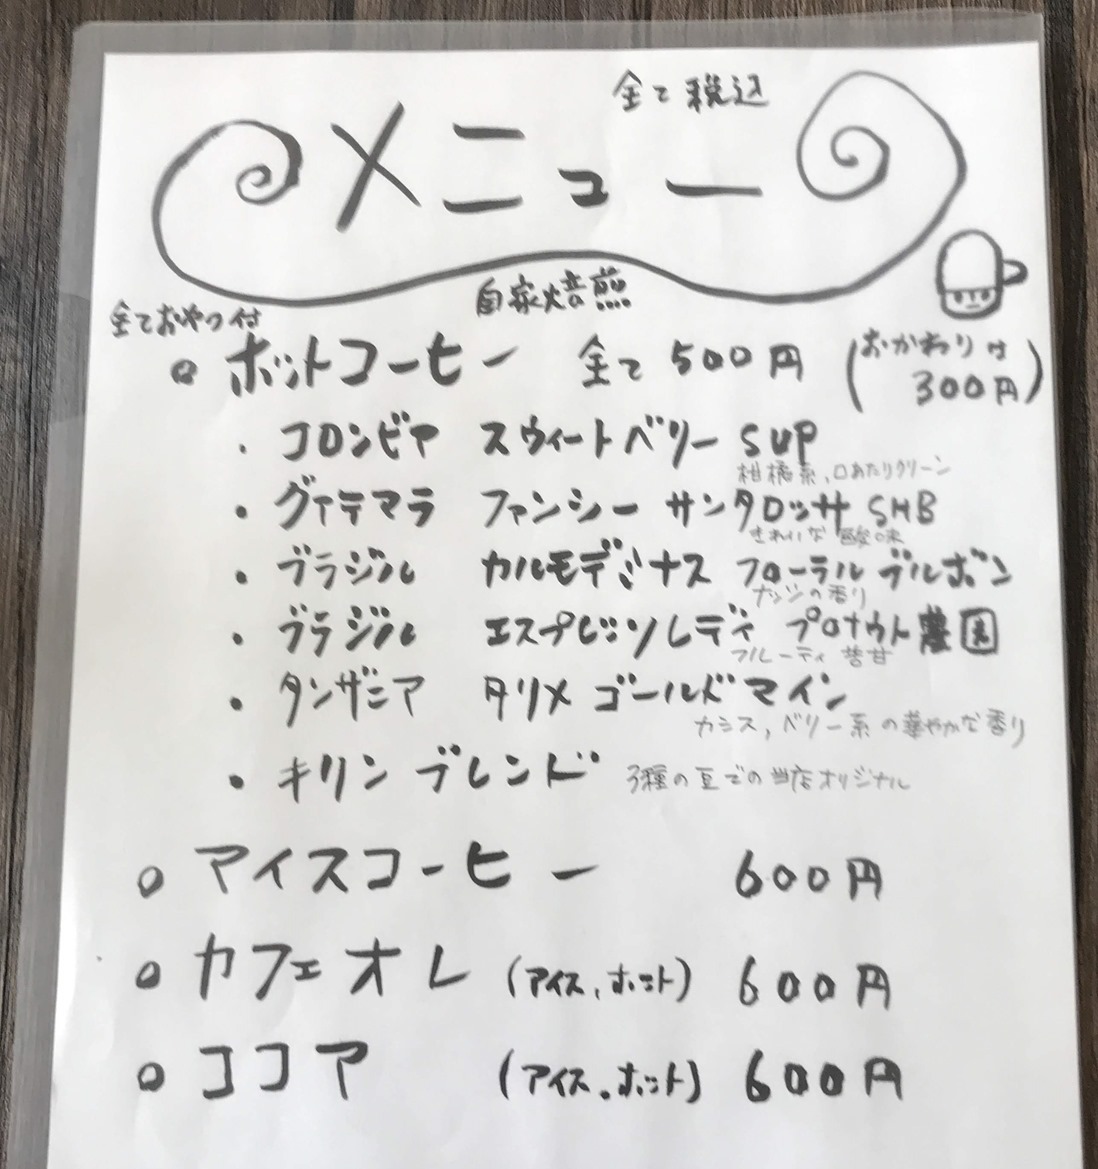 全て税込
メニュー
自家焙煎
全ておやつ付
ホットコーヒー 全て 500円 (おかわりは 300円)
・コロンビア スウィートベリー SUP
柑橘系、口あたりクリーン
・グァテマラ ファンシー サンタロッサ SHB
さわいな酸味
・ブラジル カルモデミナス フローラル ブルボン
ナッツの香り
・ブラジル エスプレッソレディ プロナウト農園
フルーティ 苦甘
・タンザニア タリメ ゴールドマイン
カシス, ベリー系の華やかな香り
・キリン ブレンド 3種の豆での当店オリジナル
アイスコーヒー 600円
カフェオレ (アイス、ホット) 600円
ココア (アイス・ホット) 600円